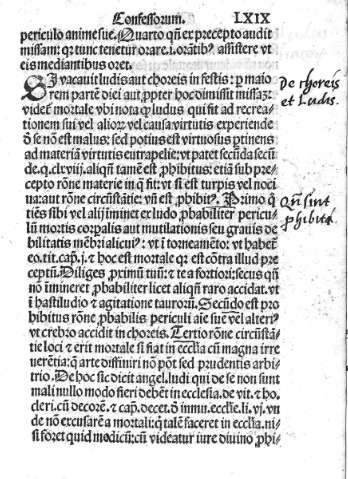 Confessorum. LXIX
periculo anime sue. Quarto qñ ex precepto audit
missam: qꝛ tunc tenetur orare. i. orantibꝰ assistere vt
eis mediantibus oret.
SI vacauit ludis aut choreis in festis: ꝑ maio
rem partē diei aut ꝓpter hoc dimisit missaꝫ:
videt̃ mortale vbi nota ꝙ ludus qui fit ad recrea-
tionem sui vel alioꝝ vel causa virtutis experiende
ꝺ se nō est malus: sed potius est virtuosus ꝑtinens
ad materiā virtutis eutrapelie: vt patet secūda secū
de. q. clxviij. aliqñ tamē est ꝓhibitus: etiā sub pre-
cepto rōne materie in q̃ fit: vt si est turpis vel noci
ua: aut rōne circūstātie: vñ est ꝓhibitꝰ. Primo qñ
tiēs sibi vel alij iminet ex ludo ꝓbabiliter pericu-
lū mortis corpalis aut mutilationis seu grauis de
bilitatis mēbri alicuiꝰ: vt ĩ torneamēto: vt habet̃
eo. tit. cap. j. ⁊ hoc est mortale qꝛ est cōtra illud pre
ceptū. Diliges ꝓximū tuū: ⁊ te a fortiori: secus qñ
nō ĩmineret ꝓbabiliter licet aliqñ raro accidat. vt
ĩ hastiludio ⁊ agitatione tauroꝝ. Secūdo est pro
hibitus rōne ꝓbabilis periculi aīe sue vel alteriꝰ
vt crebro accidit in choreis. Tertio rōne circūstā-
tie loci ⁊ erit mortale si fiat in ecclīa cū magna irre
uerētia: q̃ arte diffiniri nō pōt sed prudentis arbi-
trio. De hoc sic dicit angel. ludi qui de se non sunt
mali nullo modo fieri debēt in ecclesia. de vit. ⁊ ho.
cleri. cū decorē. ⁊ cap. decet. ꝺ immu. ecclīe. li. vj. vn
de nō excusarē a mortali: ꝙ talē faceret in ecclīa. ni-
si foret quid modicū: cū videatur iure diuino ꝓhi-
De choreis
et Ludis.
Qñ sint
ꝓhibita